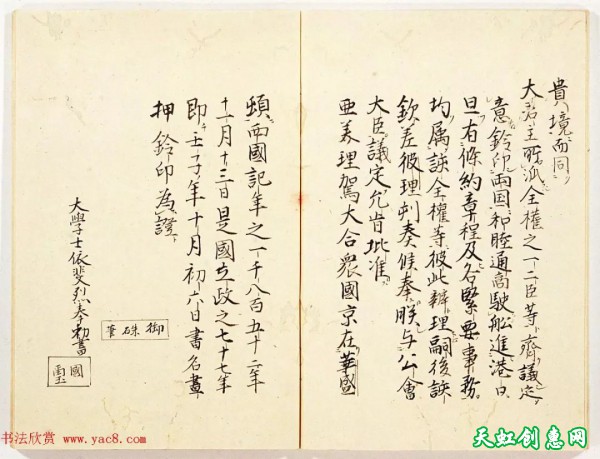 貴境面同
大君主所派全權之一二臣等齊議定
意鈐印兩國和睦通商駛船進港日
旦有條約章程及各緊要事務
均屬該全權等彼此辦理嗣後該
欽差彼理刋奏候奉朕与公會
大臣議定允肯批准
亜美理駕大合衆國京在華盛
頓兩國記年之一千八百五十二年
十一月十三日是國立政之七十七年
即壬子年十月初六日書名畫
押鈐印為證
大學士依斐烈奉勅書
御硃筆
國璽
书法欣赏 www.yac8.com
天虹创意网